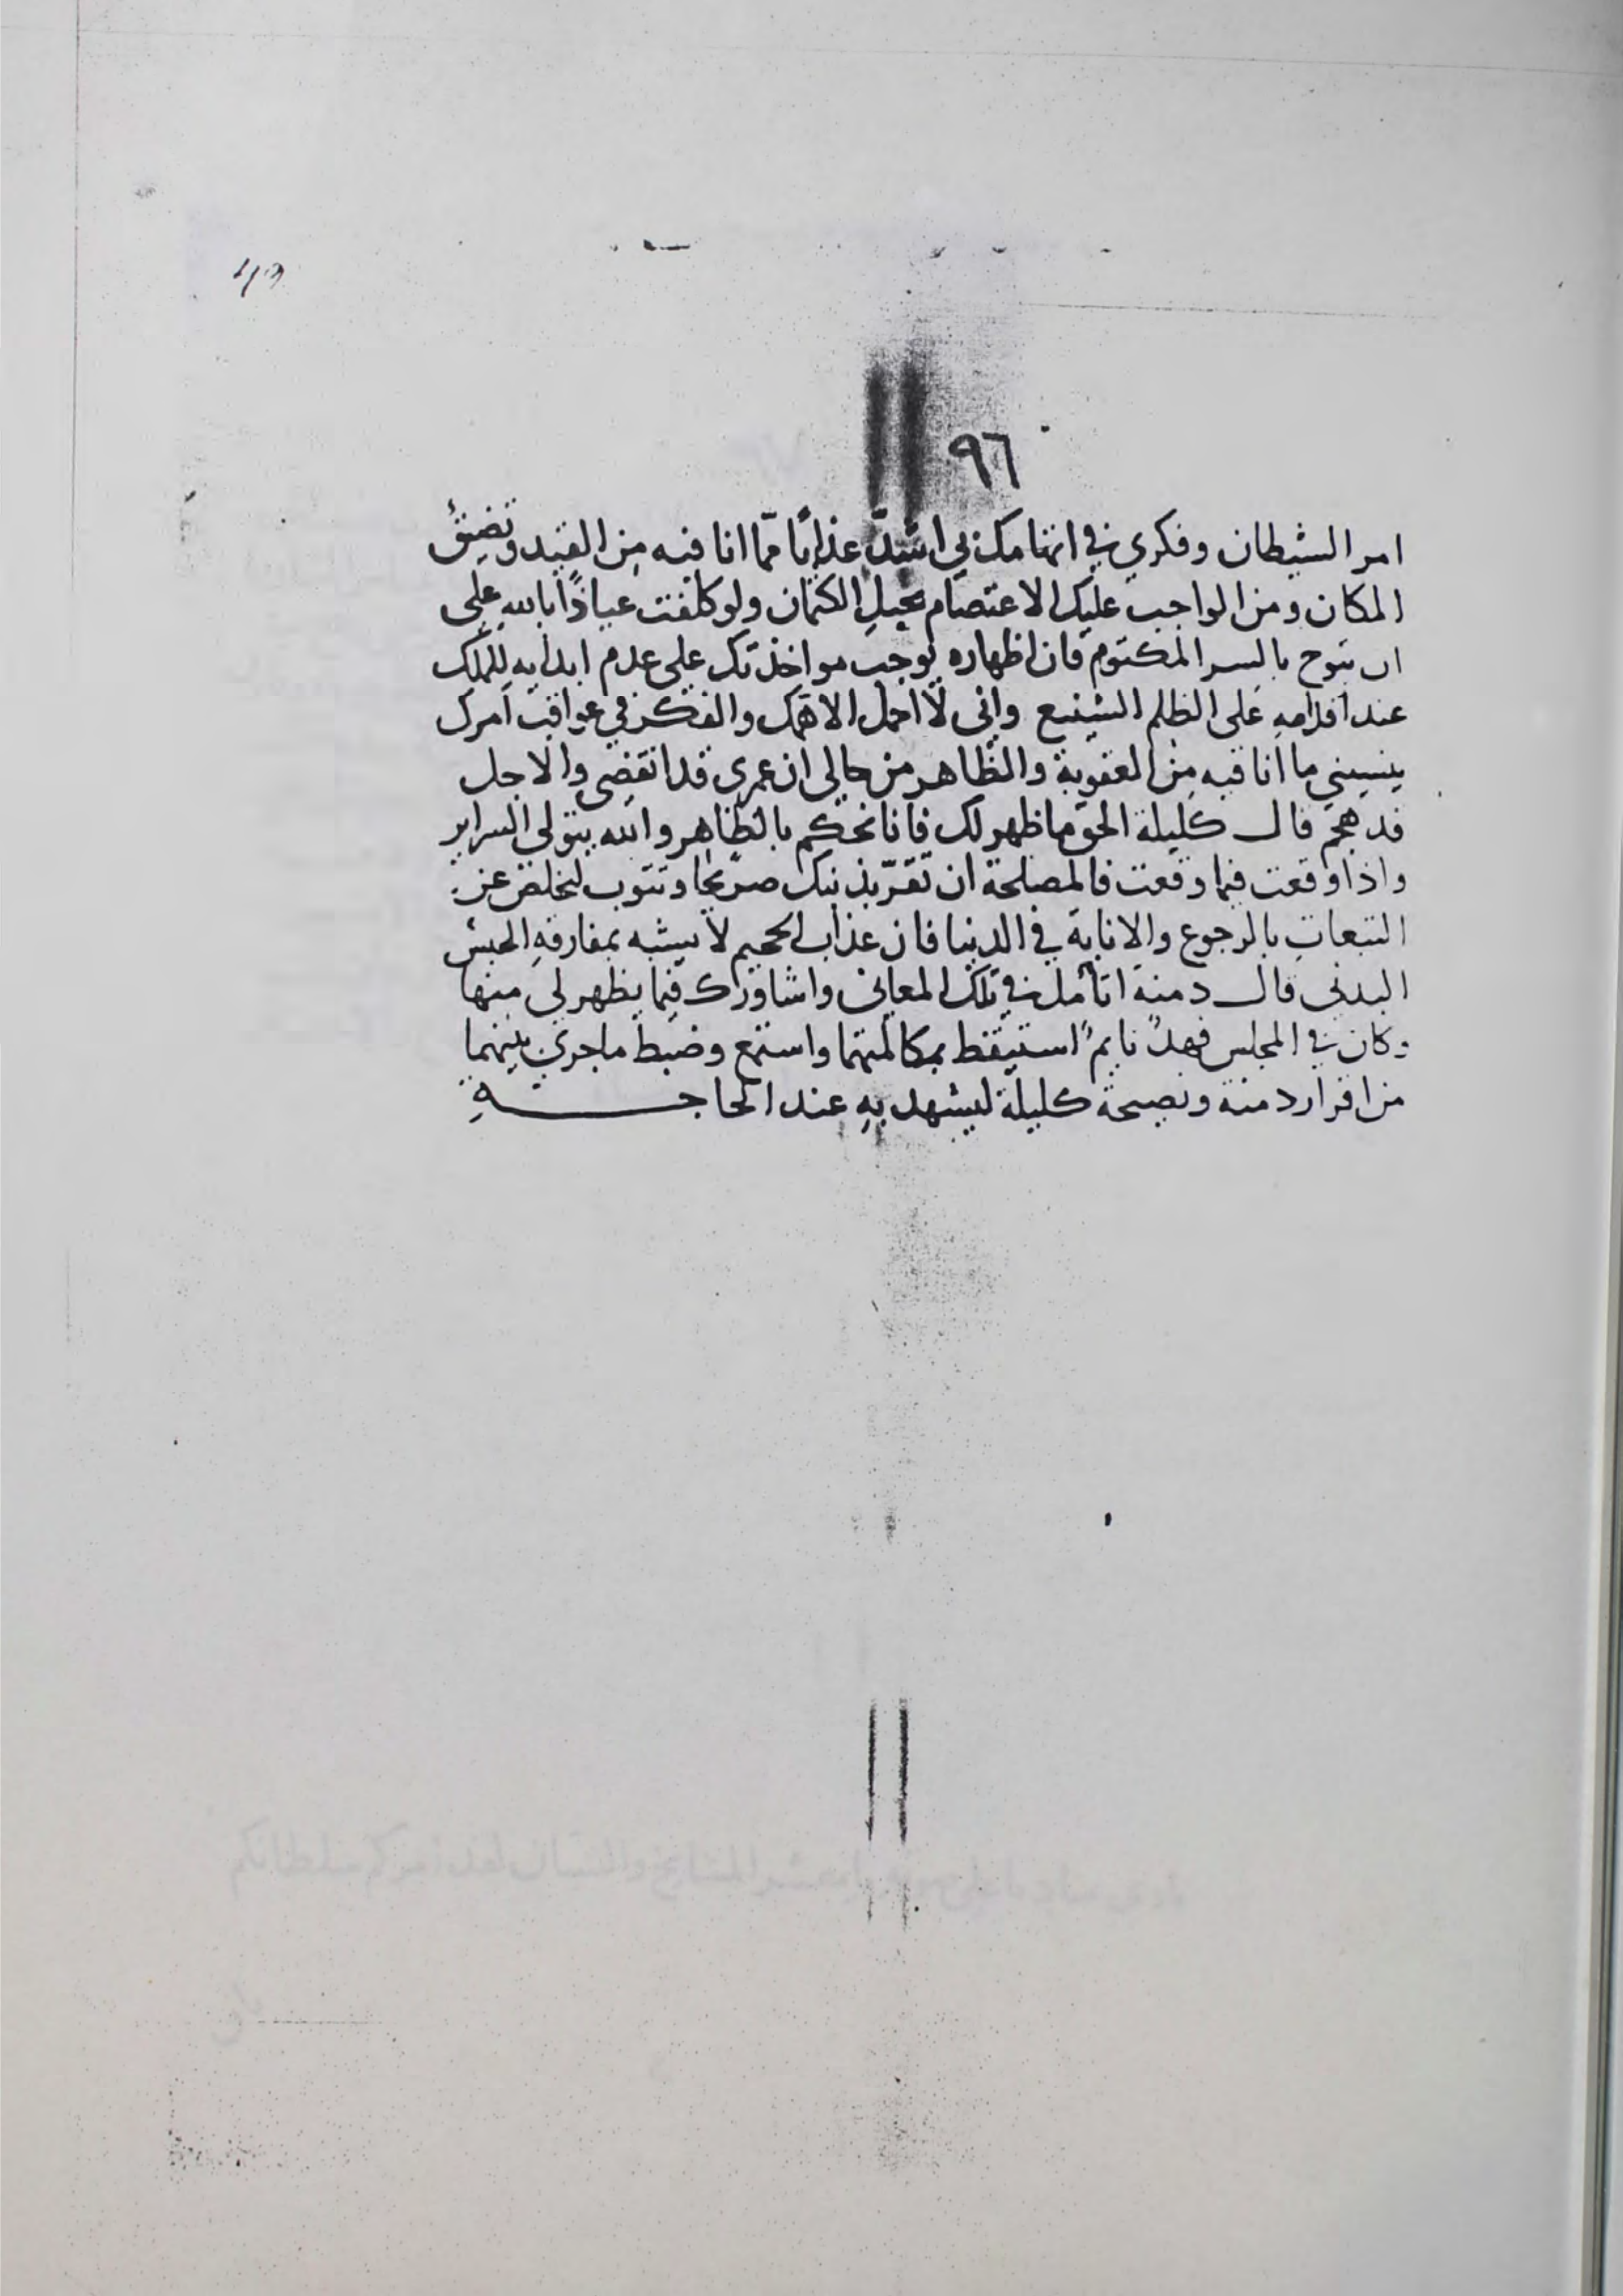 ٩٦
امر الشيطان وفكري في اتهامك بي اشدّ عذابًا ممّا انا فيه من القيد وتضيّق
المكان ومن الواجب عليك الاعتصام بحبلِ الكتمان ولو كلفت عياذًا بالله على
ان تبوح بالسر المكتوم فان اظهاره يوجب مواخذتك على عدم ابدايه للملك
عند اقدامه على الظلم الشنيع واني لا احمل الا همك والفكر في عواقب امرك
ينسيني ما انا فيه من العقوبة والظاهر من حالي ان عمري قد انقضى والاجل
قد هجم قال كليلة الحق ما ظهر لك فانا نحكم بالظاهر والله يتولى السراير
واذا وقعت فيما وقعت فالمصلحة ان تقرّ بذنبك صريحًا وتتوب لتخلص عن
التبعاتِ بالرجوع والانابة في الدنيا فان عذاب الجحيم لا يشبه بمفارقةِ الحبس
البدني قال دمنة اتأمل في تلك المعاني واشاورك فيما يظهر لي منها
وكان في المجلس فهدٌ نايمٌ استيقظ بمكالمتهما واستمع وضبط ماجرى بينهما
من اقرار دمنة ونصيحة كليلة ليشهد بهِ عند الحاجةِ